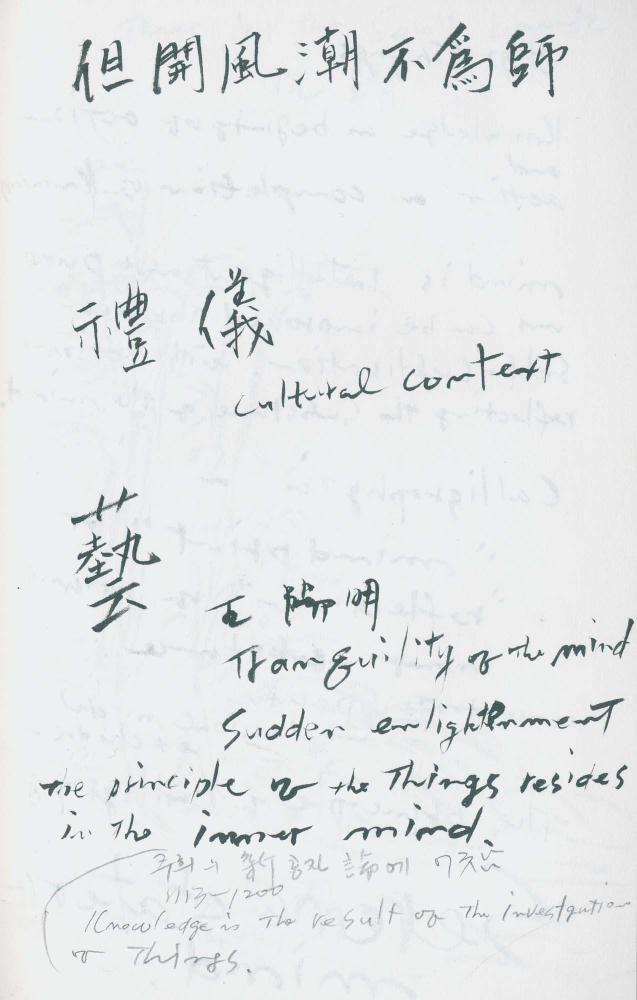 但開風潮不爲師
禮儀
cultural context
藝
王陽明
Tranquility of the mind
Sudden enlightenment
the principle of the Things resides
in the inner mind.
주희의 論에
1113~1200
Knowledge is The result of The investgation
of Things.